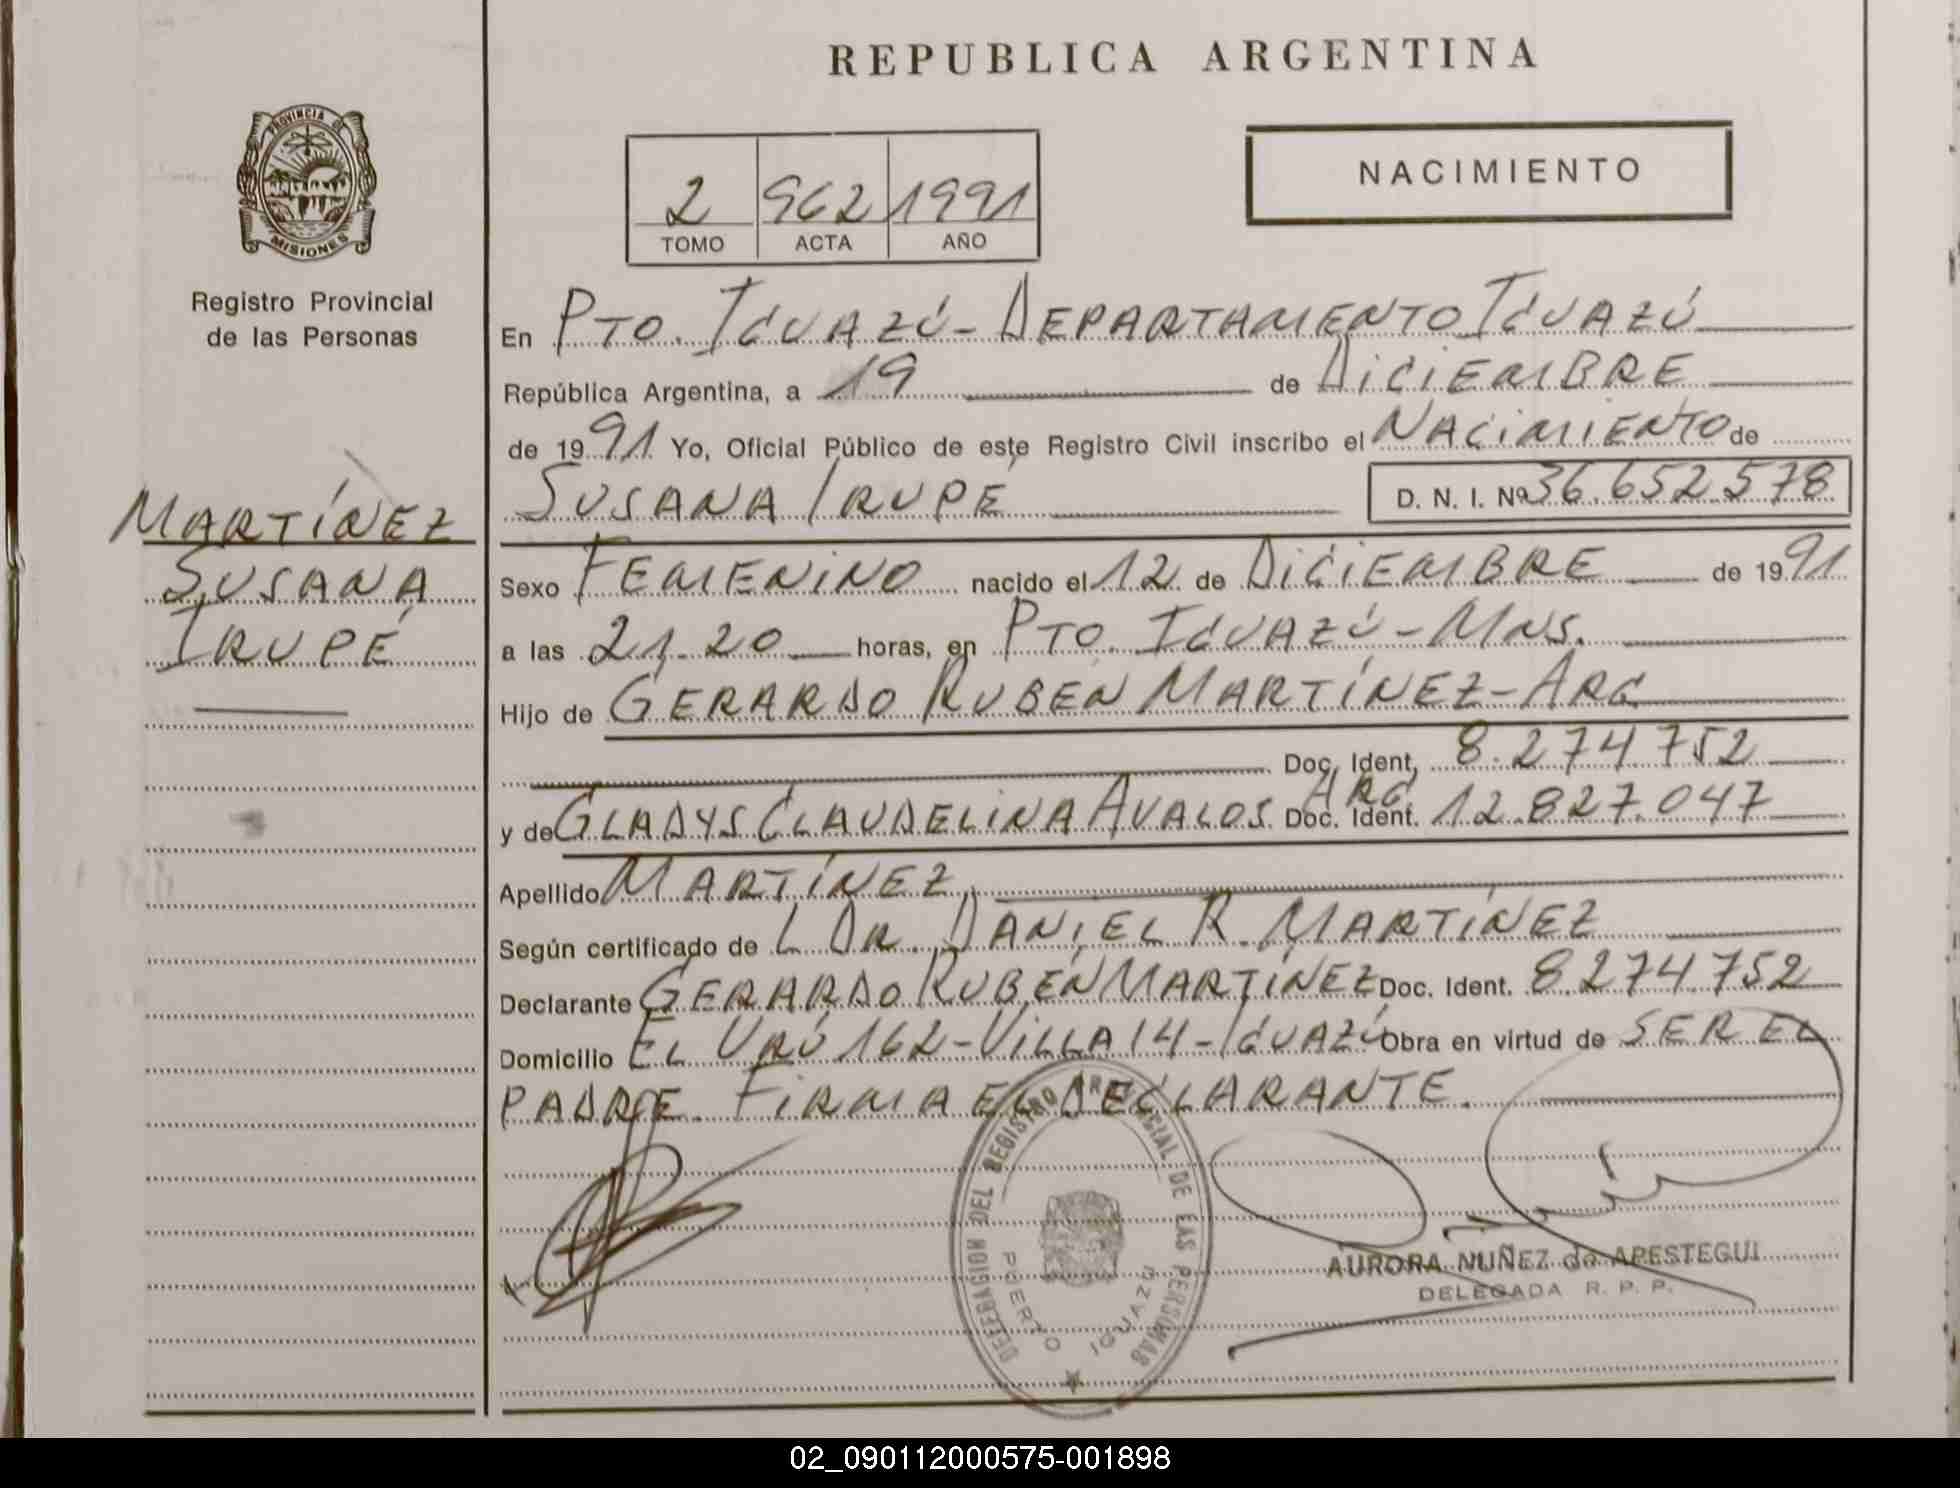 REPUBLICA ARGENTINA
PROVINCIA DE
MISIONES
Registro Provincial
de las Personas
NACIMIENTO
2 962 1991
TOMO ACTA AÑO
En PTO. IGUAZÚ - DEPARTAMENTO IGUAZÚ
República Argentina, a 19 de DICIEMBRE
de 1991 Yo, Oficial Público de este Registro Civil inscribo el NACIMIENTO de
SUSANA IRUPÉ D. N. I. Nº 36.652.578
MARTÍNEZ
SUSANA
IRUPÉ
Sexo FEMENINO nacido el 12 de DICIEMBRE de 1991
a las 21.20 horas, en PTO. IGUAZÚ - MNS.
Hijo de GERARDO RUBEN MARTÍNEZ - ARG.
Doc. Ident. 8.274.752
y de GLADYS CLAUDELINA AVALOS ARG. Doc. Ident. 12.827.047
Apellido MARTÍNEZ
Según certificado de L DR. DANIEL R. MARTÍNEZ
Declarante GERARDO RUBÉN MARTÍNEZ Doc. Ident. 8.274.752
Domicilio EL URÚ 162 - VILLA 14 - IGUAZÚ Obra en virtud de SER EL
PADRE. FIRMA EL DECLARANTE.
DELEGACION DEL REGISTRO PROVINCIAL DE LAS PERSONAS
PUERTO IGUAZU
AURORA NUÑEZ de APESTEGUI
DELEGADA R. P. P.
02_090112000575-001898